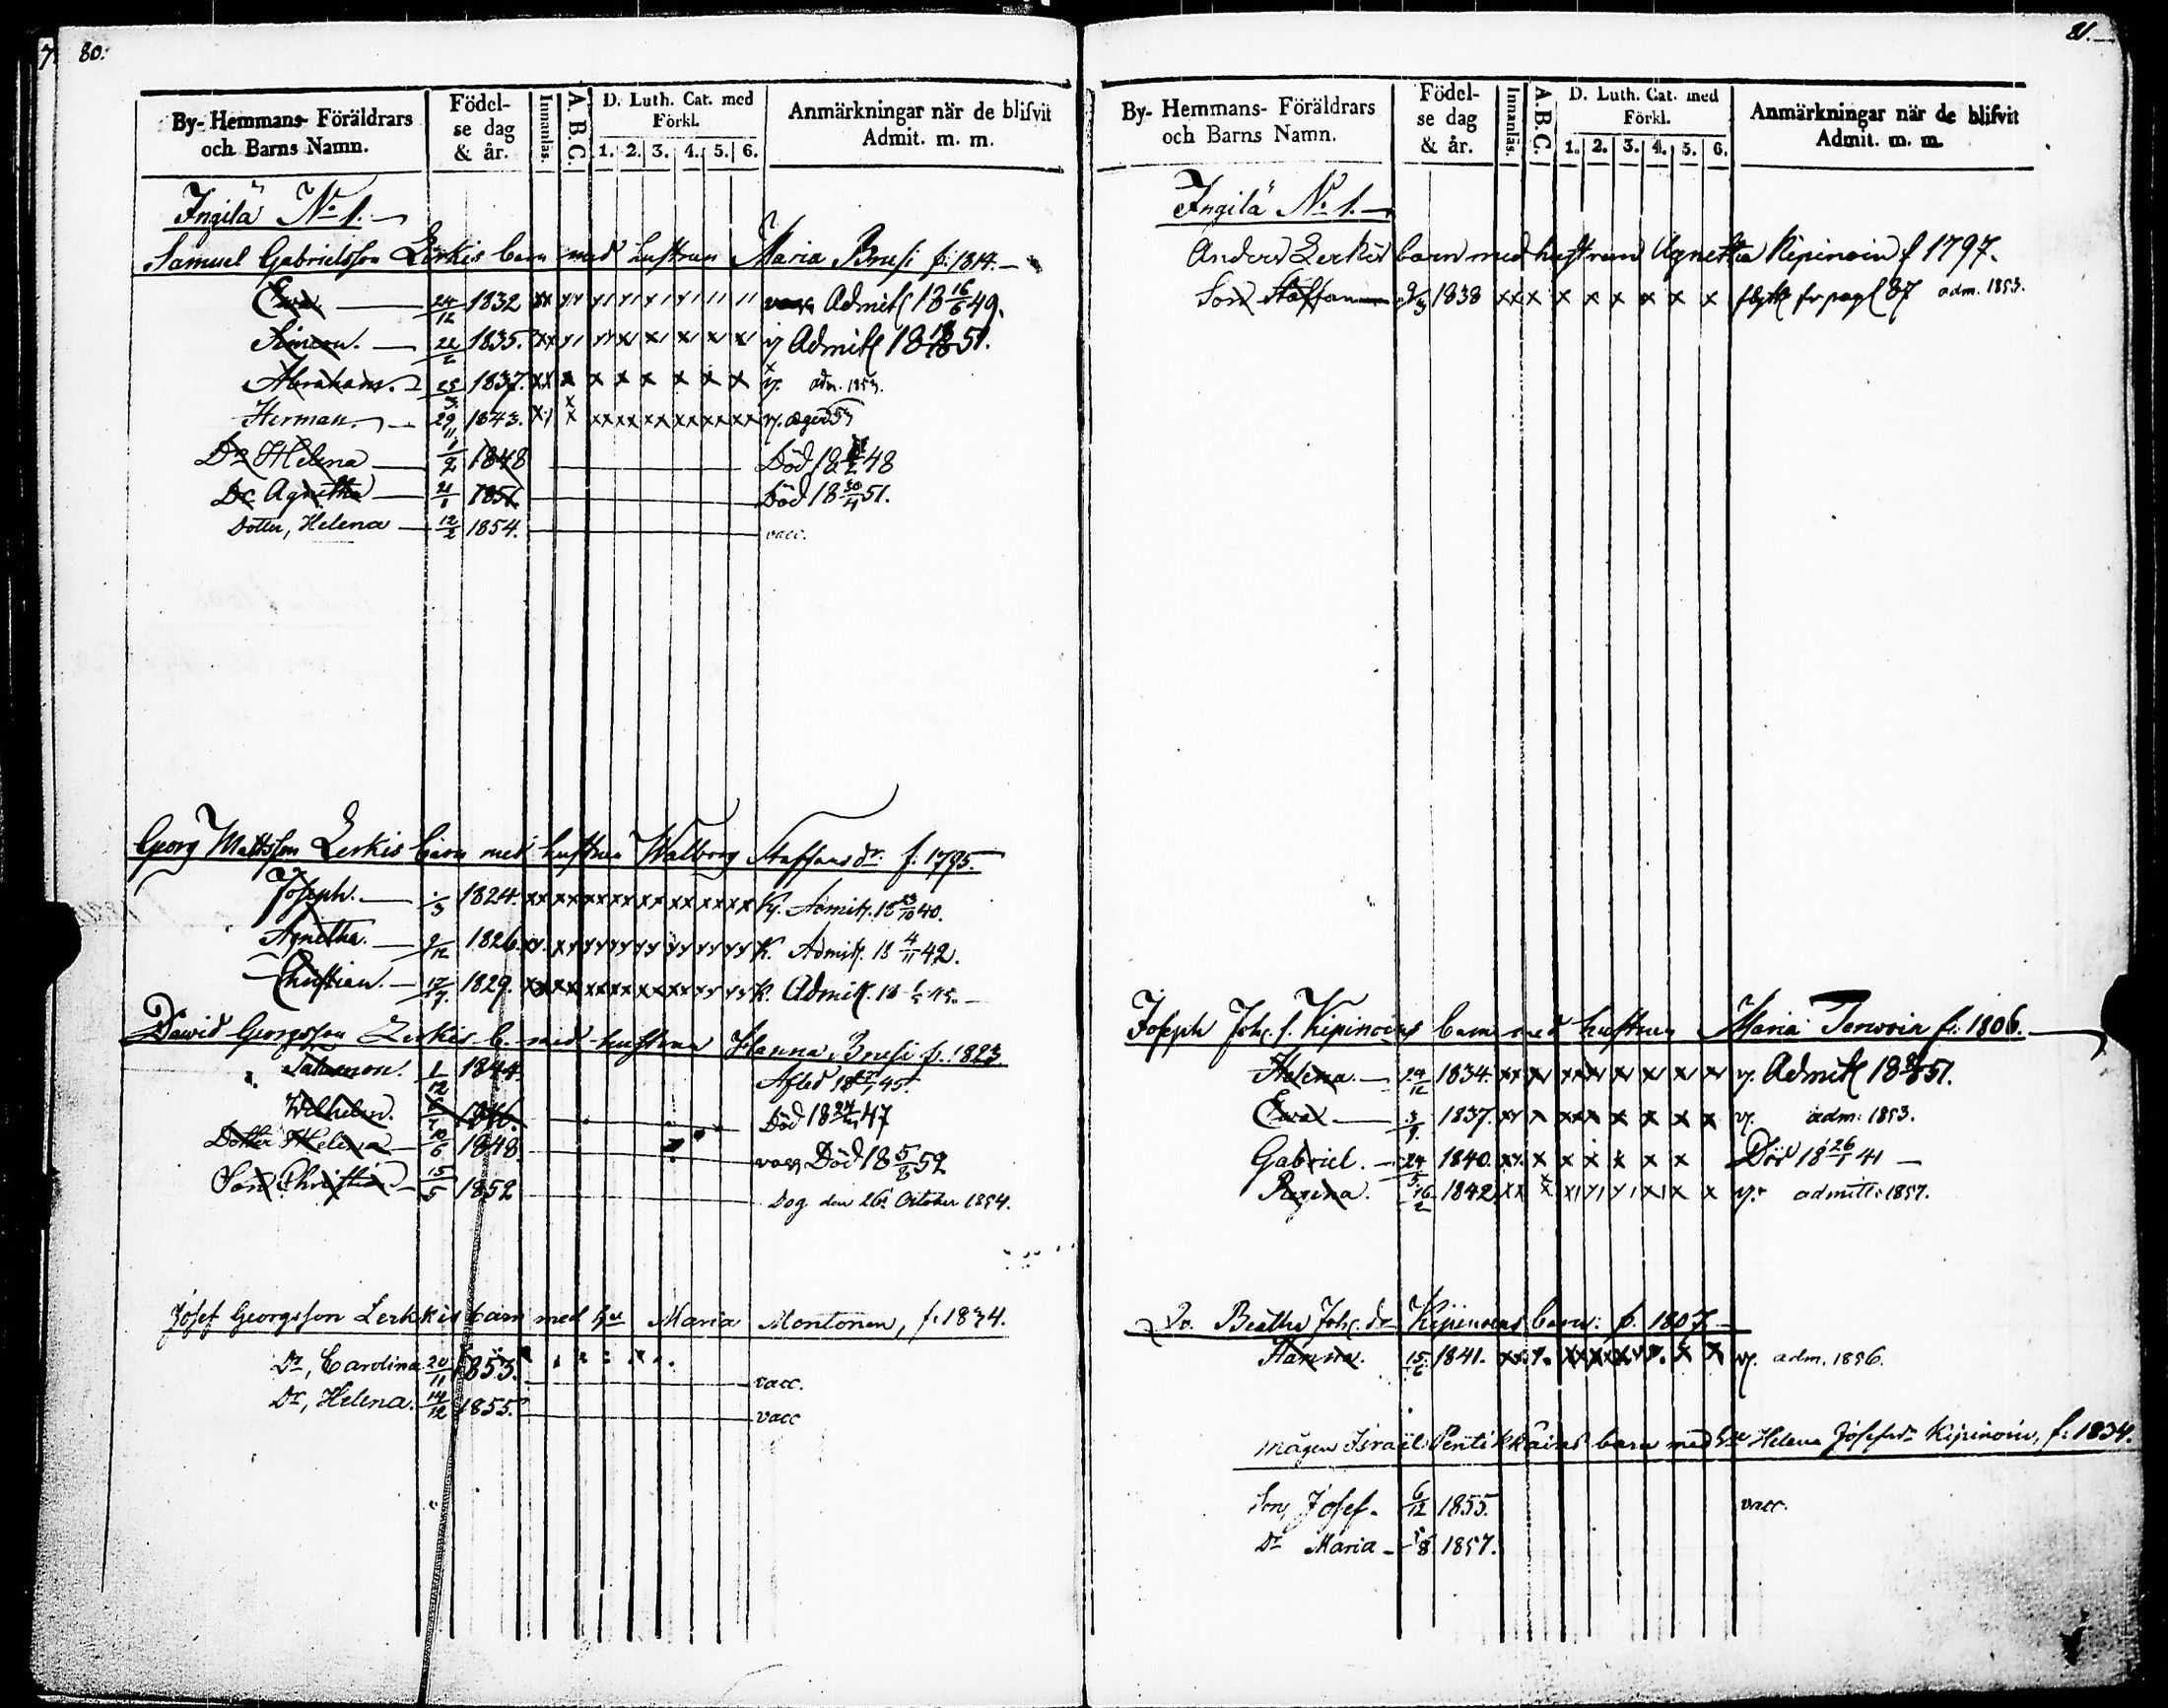 80.
By- Hemmans- Föräldrars och Barns Namn.
Födelse dag & år.
Innanläs.
A.B.C.
D. Luth. Cat. med Förkl.
1. 2. 3. 4. 5. 6.
Anmärkningar när de blifvit Admit. m. m.
Ingilä No 1.
Samuel Gabrielsson Lerkis barn med hustrun Maria Brusi f. 1814.
Ewa 24/12 1832 Admitt 18 16/6 49.
Simeon. 22/2 1835. Admitt 18 51.
Abraham. 25/3 1837. adm. 1853.
Herman. 29/11 1843.
Dr Helena 1/2 1848 Död 18 48
Dr Agnetha 21/1 1851 Död 18 30/4 51.
Dotter, Helena 12/2 1854. vacc.
Georg Mattsson Lerkis barn med hustrun Walborg Staffansdr. f. 1795.
Joseph. /3 1824. Admitt. 18 23/10 40.
Agnetha. 9/12 1826. Admitt. 18 4/11 42.
Christian. 17/7 1829. Admitt. 18 45.
Dawid Georgsson Lerkis b. med hustrun Hanna Brusi f. 1823.
Salomon. 1/12 1844. Afled 18 45.
Wilhelm. 1846. Död 18 47
Dotter Helena 10/6 1848. vacc Död 18 5/6 52
Son Christian 15/5 1852 Dog den 26 October 1854.
Josef Georgsson Lerkkis barn med hu Maria Montonen, f. 1834.
Dr, Carolina 20/11 1853. vacc.
Dr, Helena. 14/12 1855. vacc
81.
By- Hemmans- Föräldrars och Barns Namn.
Födelse dag & år.
Innanläs.
A.B.C.
D. Luth. Cat. med Förkl.
1. 2. 3. 4. 5. 6.
Anmärkningar när de blifvit Admit. m. m.
Ingilä No 1.
Anders Lerkis barn med hustrun Agnetha Kipinoin f 1797.
Son Staffan 9/3 1838 flytt fr pag 87 adm. 1853.
Joseph Joh. s. Kipinoins barn med hustrun Maria f. 1806.
Helena. 24/12 1834. Admitt 18 51.
Ewa 3/9 1837. adm: 1853.
Gabriel. 24/5 1840. Död 18 26/1 41
Regina. 16/2 1842 admitt. 1857.
Beatha Joh. dr Kipinoins barn: f. 1807
Hanna. 15/2 1841. adm. 1856.
mågen Israel Pentikkäins barn med hu Helena Josefsdr Kipinoin, f. 1834.
Son, Josef. 6/12 1855. vacc.
Dr Maria 8 1857.